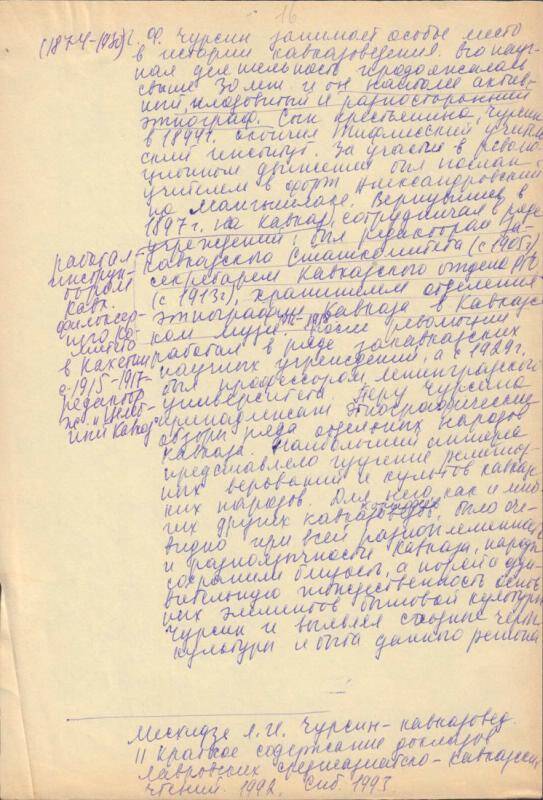 16
(1874-1930) Г. Ф. Чурсин занимает особое место
в истории кавказоведения. Его науч-
ная деятельность продолжалась
свыше 30 лет и он наиболее актив-
ный, плодовитый и разносторонний
этнограф. Сын крестьянина, Чурсин
в 1894 г. окончил Тифлисский учитель-
ский институт. За участие в револю-
ционном движении был послан
учителем в форт Александровский
на Мангышлаке. Вернувшись в
1897 г. на Кавказ, сотрудничал в ряде
учреждений: был редактором За-
кавказского Статкомитета (с 1905 г.),
секретарем Кавказского отдела РГО
(с 1913 г), хранителем отделения
этнографии Кавказа в Кавказс-
ком музее. После революции
работал в ряде закавказских
научных учреждений, а с 1929 г.
был профессором Ленинградского
университета. Перу Чурсина
принадлежат этнографические
обзоры ряда отдельных народов
Кавказа. Наибольший интерес
представляло изучение религиоз-
ных верований и культов кавказ-
ких народов. Для него, как и мно-
гих других кавказоведов было оче-
видно при всей разноплеменности
и разноязычности Кавказа, народы
сохранили близость, а порой и уди-
вительную тождественность основ-
ных элементов бытовой культуры
Чурсин и выявлял сходные черты
культуры и быта данного региона
работал
инструк-
тором
Кавк.
филоксер-
ного Ко-
митета
в Кахетии
с 1915-1917
редактор
ж.
Месхидзе Л. И. Чурсин-кавказовед.
|| Краткое содержание докладов
Лавровских среднеазиатско-Кавказских
чтений 1992. Спб. 1993